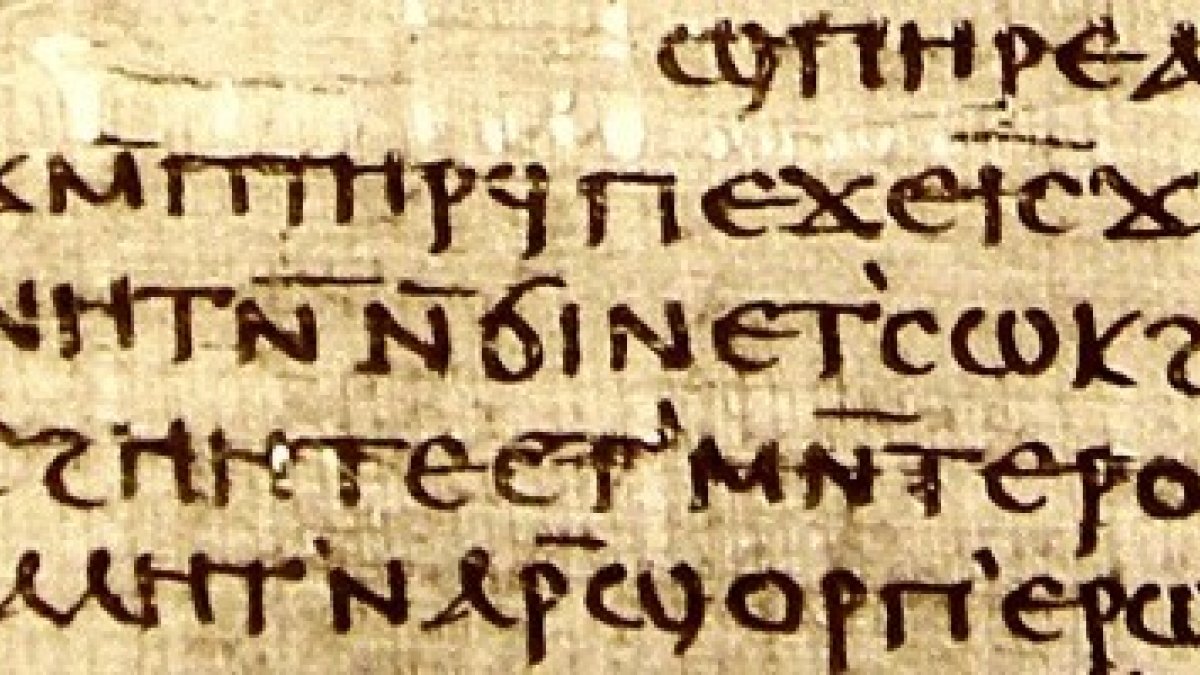 ϣⲡⲏⲣⲉⲁ
ϫⲙ̄ⲡⲧⲏⲣϥⲡⲉϫⲉⲓ̄ⲥ̄ϫ
ⲛⲏⲧⲛ̄ⲛ̄ϭⲓⲛⲉⲧ'ⲥⲱⲕϩ
ⲥϩⲏⲏⲧⲉⲉⲧ'ⲙⲛ̄ⲧⲉⲣⲟ
ⲁⲗⲏⲧ'ⲛⲁⲣ̄ϣⲟⲣⲡ'ⲉⲣⲱ